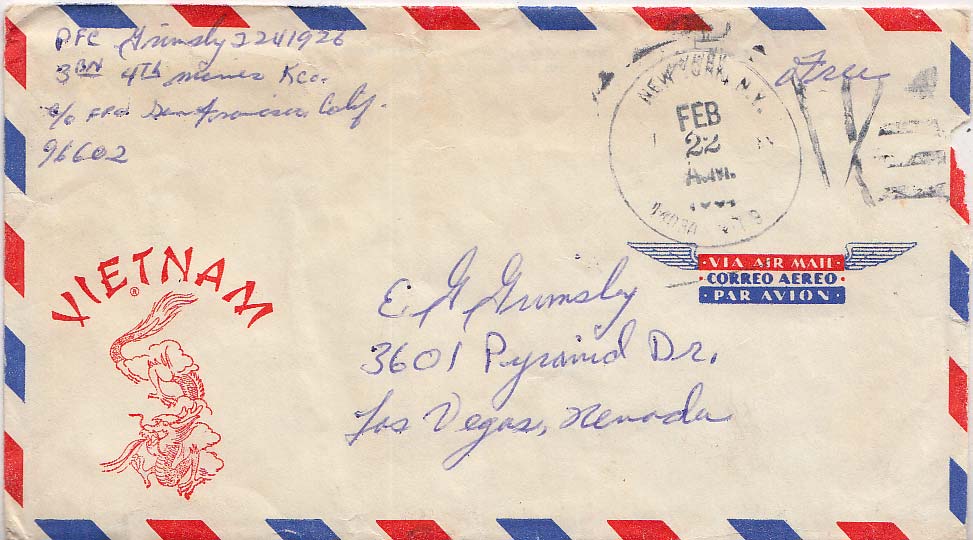 PFC Grimsby 2241926
3BN 4th marines Kco.
c/o FPO San Francisco, Calif.
96602
Free
NEW YORK, N.Y.
FEB
22
A.M.
VIETNAM
®
·VIA AIR MAIL·
·CORREO AEREO·
·PAR AVION·
E G Grimsby
3601 Pyramid Dr.
Las Vegas, Nevada